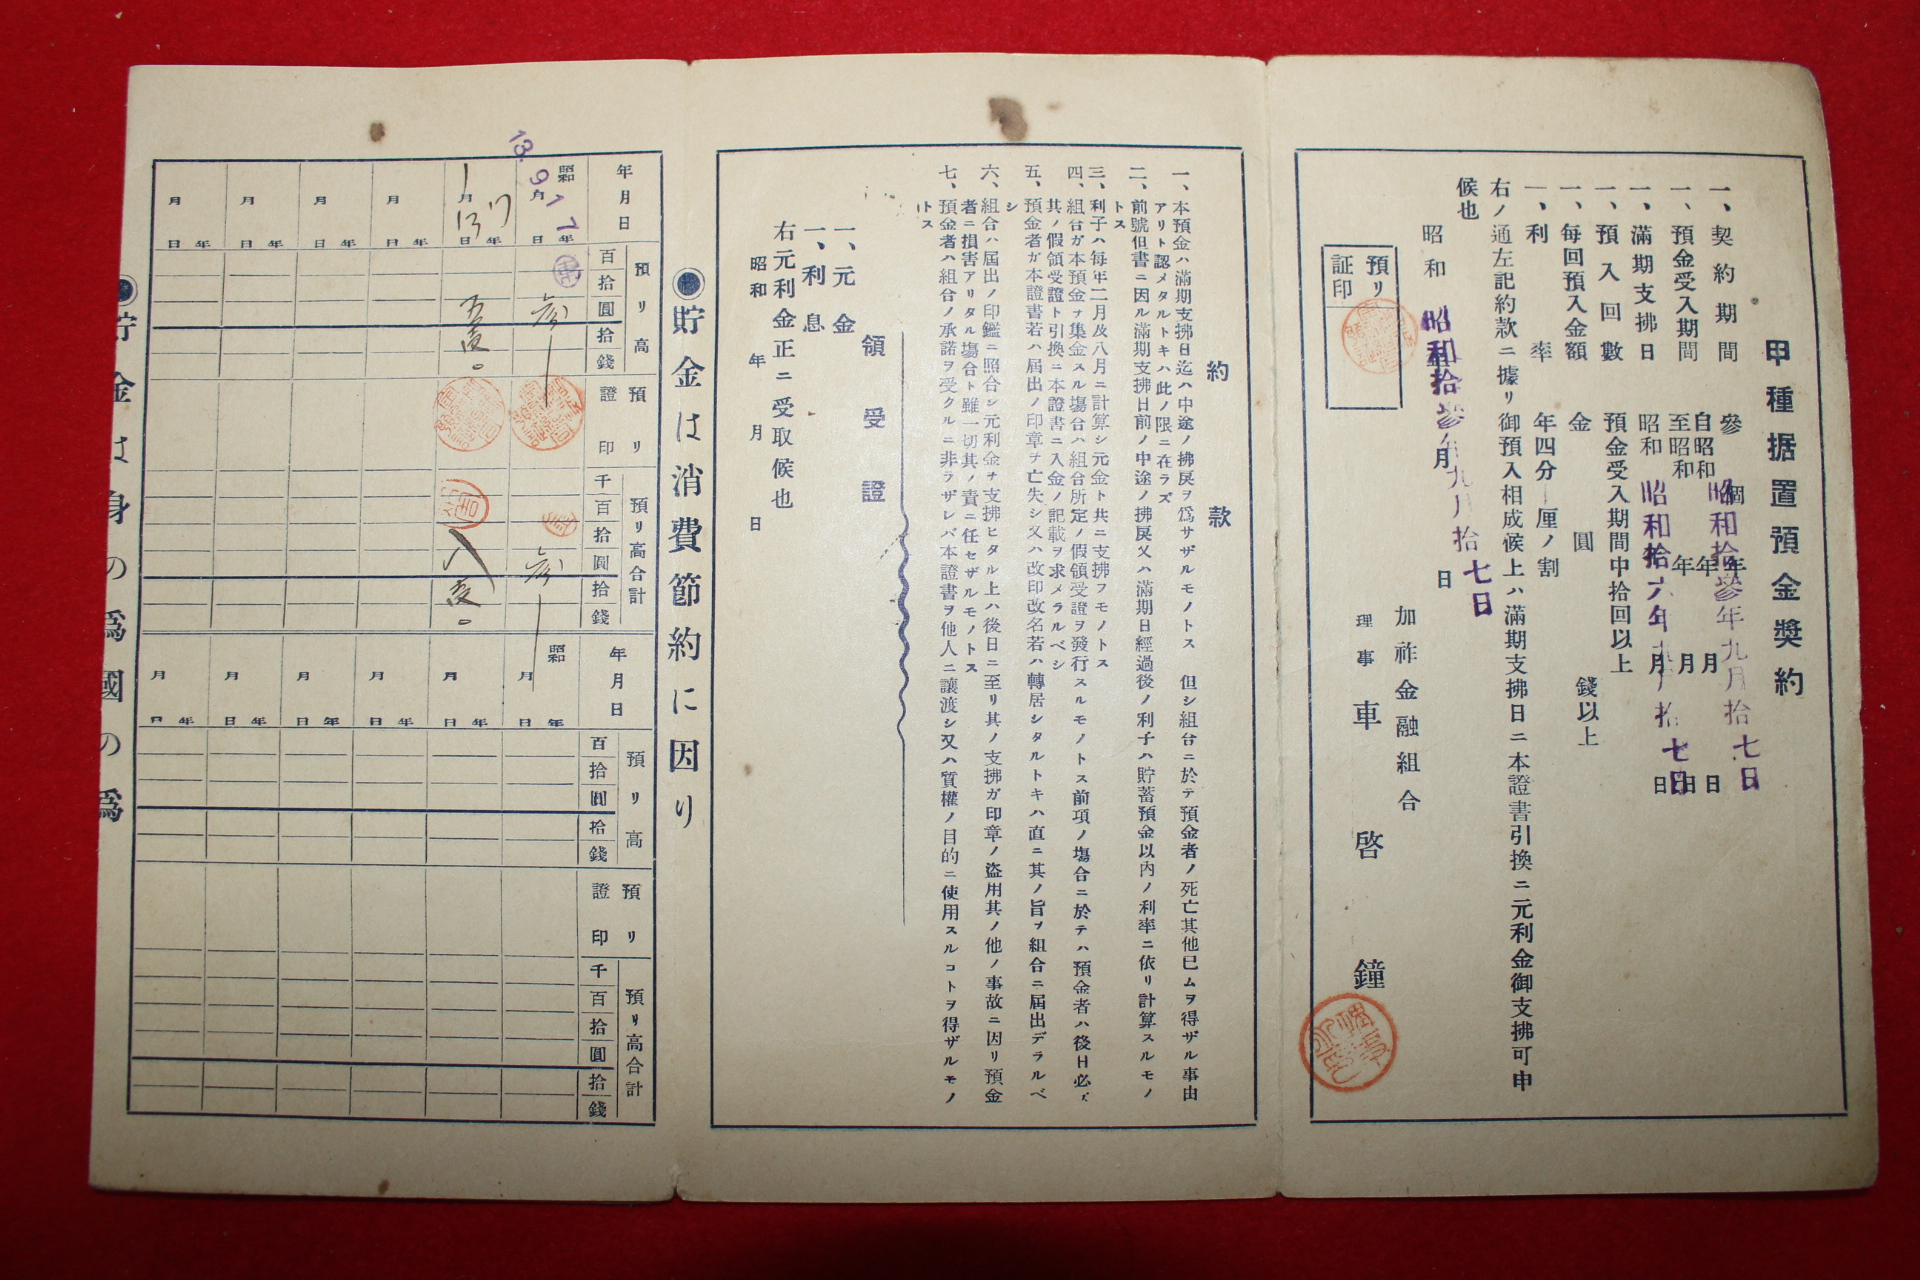 甲種据置預金契約
一、契約期間 參個年
一、預金受入期間 自昭和 年 月 日
至昭和 年 月 日
昭和拾參年九月拾七日
一、滿期支拂日 昭和 年 月 日
昭和拾六年九月拾七日
一、預入回數 預金受入期間中拾回以上
一、每回預入金額 金 圓 錢以上
一、利率 年四分 厘ノ割
右ノ通左記約款ニ據リ御預入相成候上ハ滿期支拂日ニ本證書引換ニ元利金御支拂可申
候也
昭和 年 月 日
昭和拾參年九月拾七日
預リ
証印
加祚金融組合
理事 車啓鐘
約款
一、本預金ハ滿期支拂日迄ハ中途ノ拂戾ヲ爲サザルモノトス 但シ組合ニ於テ預金者ノ死亡其他已ムヲ得ザル事由
アリト認メタルトキハ此ノ限ニ在ラズ
二、前號但書ニ因ル滿期支拂日前ノ中途ノ拂戾又ハ滿期日經過後ノ利子ハ貯蓄預金以內ノ利率ニ依リ計算スルモノ
トス
三、利子ハ每年二月及八月ニ計算シ元金ト共ニ支拂フモノトス
四、組合ガ本預金ヲ集金スル場合ハ組合所定ノ假領受證ヲ發行スルモノトス前項ノ場合ニ於テハ預金者ハ後日必ズ
其ノ假領受證ト引換ニ本證書ニ入金ノ記載ヲ求メラルベシ
五、預金者ガ本證書若ハ屆出ノ印章ヲ亡失シ又ハ改印改名若ハ轉居シタルトキハ直ニ其ノ旨ヲ組合ニ屆出デラルベ
シ
六、組合ハ屆出ノ印鑑ニ照合シ元利金ヲ支拂ヒタル上ハ後日ニ至リ其ノ支拂ガ印章ノ盜用其ノ他ノ事故ニ因リ預金
者ニ損害アリタル場合ト雖一切其ノ責ニ任セザルモノトス
七、預金者ハ組合ノ承諾ヲ受クルニ非ラザレバ本證書ヲ他人ニ讓渡シ又ハ質權ノ目的ニ使用スルコトヲ得ザルモノ
トス
領受證
一、元金
一、利息
右元利金正ニ受取候也
昭和 年 月 日
貯金は消費節約に因り
年月日
預リ高
百拾圓拾錢
預リ證印
預リ高合計
千百拾圓拾錢
昭和 年 月 日
13.9.17
參
參
年 月 日
年 月 日
年 月 日
年 月 日
年 月 日
年月日
預リ高
百拾圓拾錢
預リ證印
預リ高合計
千百拾圓拾錢
昭和 年 月 日
年 月 日
年 月 日
年 月 日
年 月 日
年 月 日
貯金は身の爲國の爲